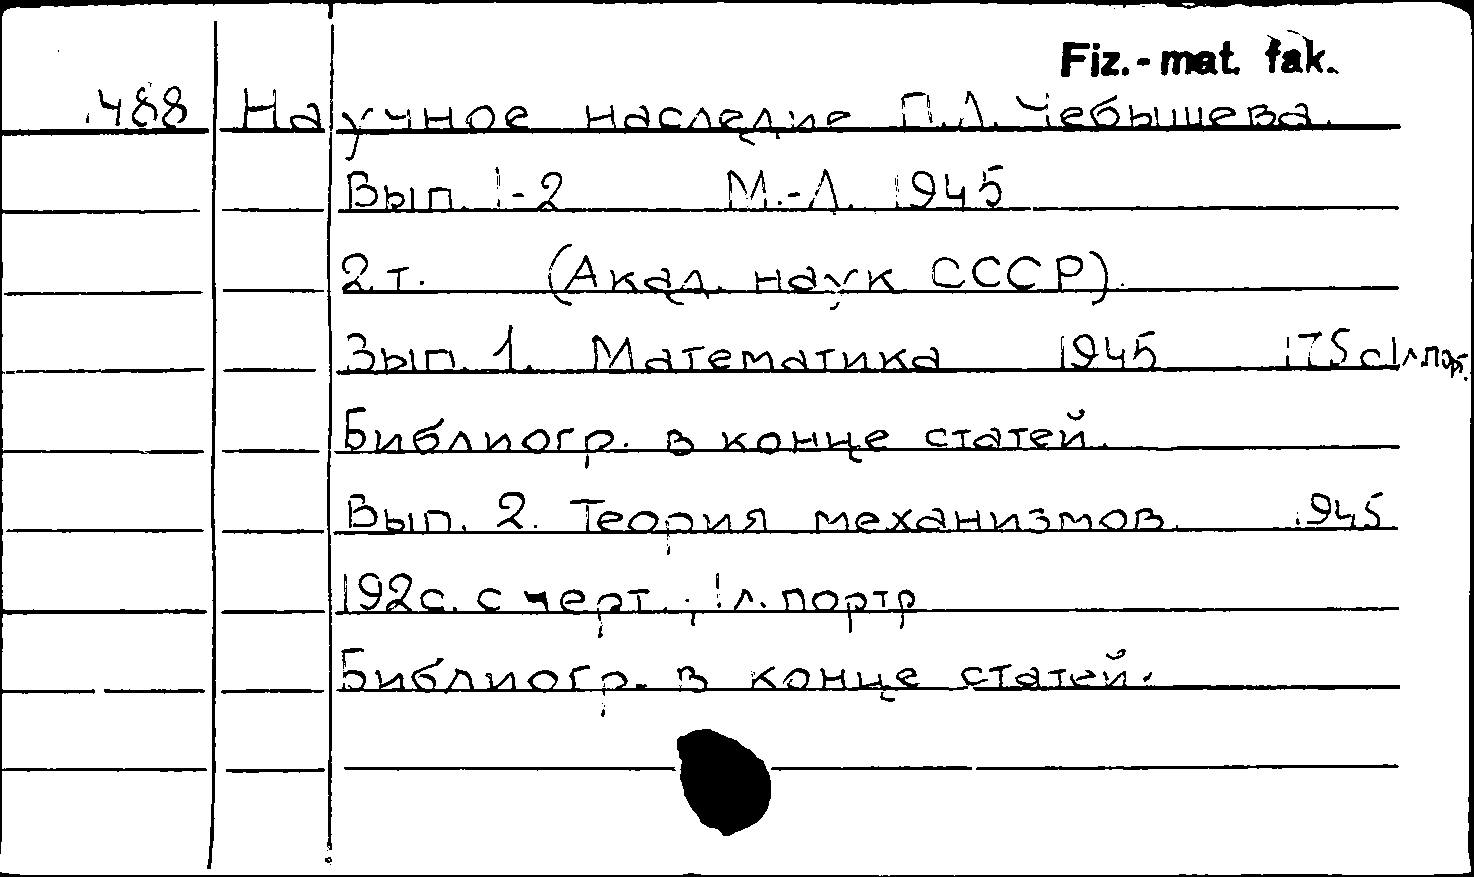 Fiz.-mat. fak.
.488 Научное наследие П.Л. Чебышева.
Вып. 1-2 М.-Л. 1945
2 т. (Акад. наук СССР).
Вып. 1. Математика 1945 175 с 1 л. порт.
Библиогр. в конце статей.
Вып. 2. Теория механизмов. 1945
192 с. с черт.; 1 л. портр
Библиогр. в конце статей.